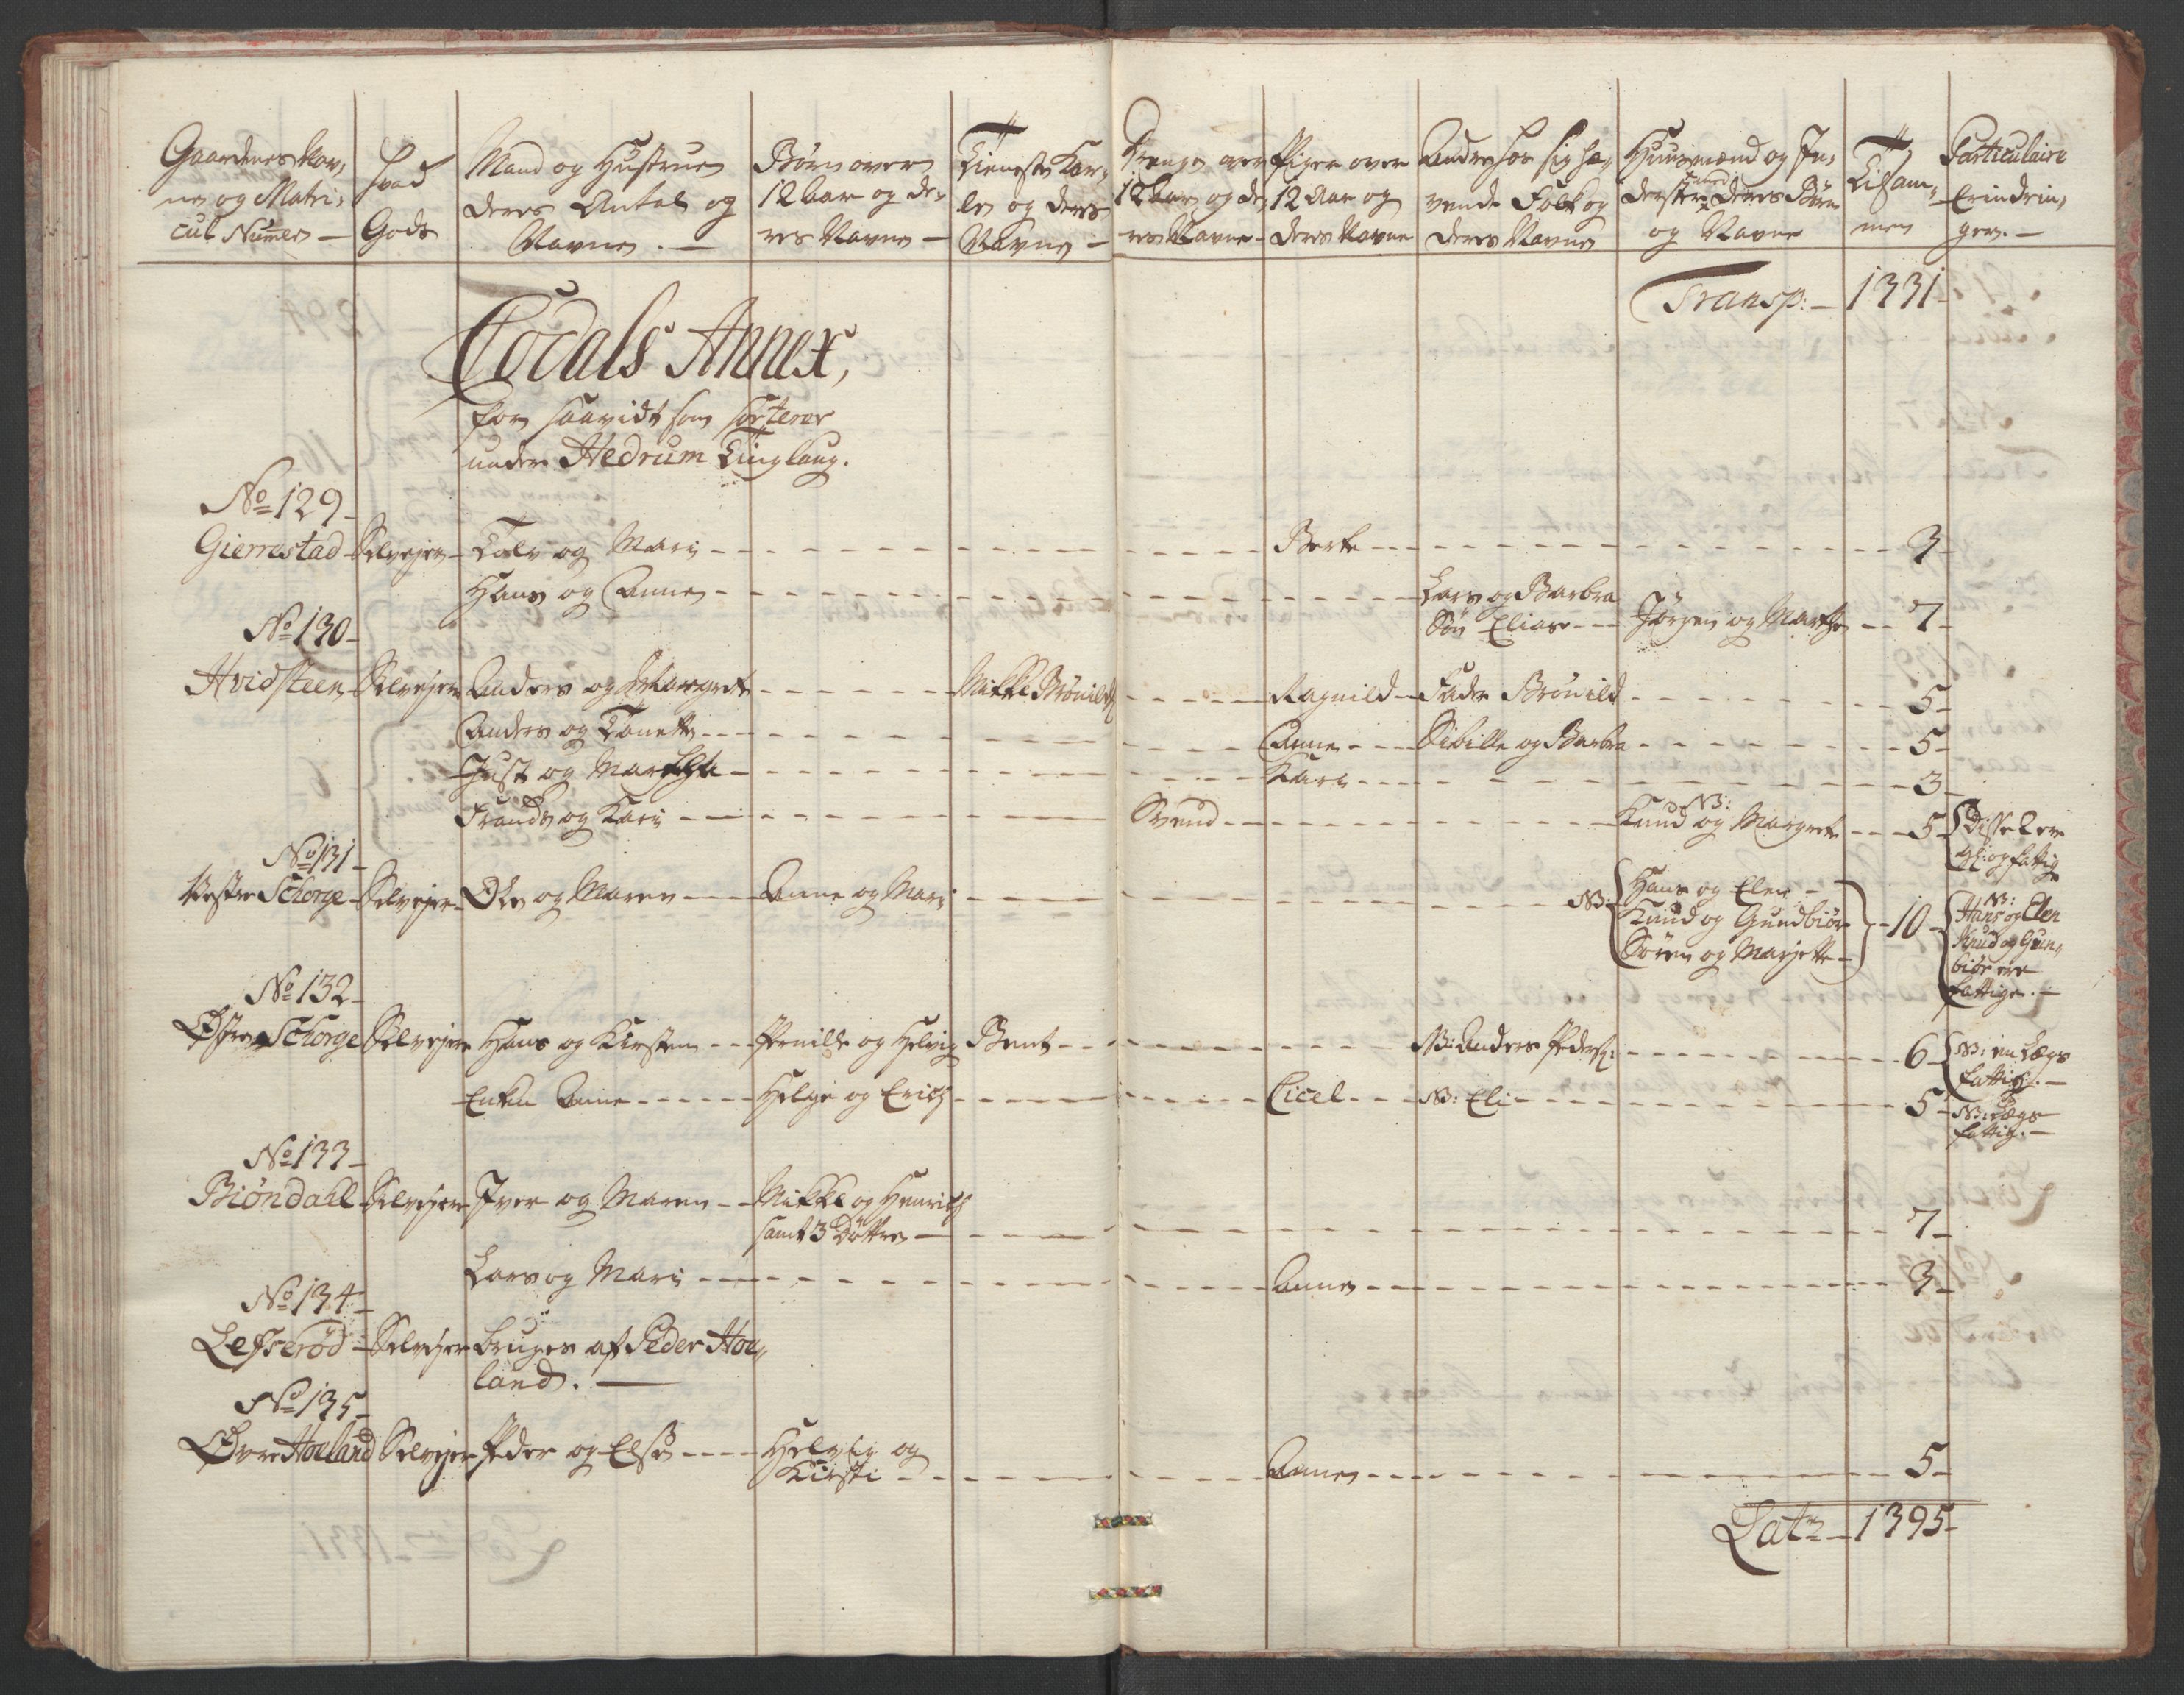 Gaardenes Nav,
ne og Matri,
cul Numer —
hvad
Gods
Mand og Hustrue
deres Antal og
Navne. —
Børn over
12 Aar og de,
res Navne —
Tieneste Kar,
le og deres
Navne —
Drenge over
12 Aar og de,
res Navne —
Piger over
12 Aar og
deres Navne
Andre hos sig ha,
vende Folk og
deres Navne
Huusmænd og In,
derster med deres Børn
og Navne
Tilsam,
men
Particulaire
Erindrin,
ger. —
Transp: — 1331 —
Todals Annex,
for saavidt som sorterer
under Hedrum Tinglaug.
No 129 —
Gierrestad — Selvejer — Talv og Mari — Berte — 3 —
Hans og Anne — Lars og Barbra
Søn Elias — Jørgen og Marthe — 7 —
No 130 —
Hvidsteen — Selvejer Anders og Margret — Mikkel Brønilds — Ragnild — Fader Brønild — 5 —
Anders og Tonette — Anne — Sibille og Barbra — 5 —
Just og Marthe — Kari — 3 —
Trands og Kari — Svend — NB: Knud og Margrete — 5 — Disse ere
gl: og fattige
No 131 —
Vestre Schorge — Selvejer — Ole og Maren — Anne og Mari — NB: Hans og Elen —
Knud og Gundbiør
Søren og Marjette — 10 — NB:
Hans og Elen
Knud og Gun,
biør ere
fattige. —
No 132 —
Østre Schorge Selvejer Hans og Kirsten — Pernille og Helvig Bent — NB: Anders Peders: — 6 — NB: en Lægs
fattig. —
Enken Anne — Helge og Erich — Cicel — NB: Eli — 5 — NB: Lægs
fattig. —
No 133 —
Biøndahl — Selvejer Iver og Maren — Mikkel og Henrich
samt 3 Døttre — 7 —
Lars og Mari — Anne — 3 —
No 134 —
Lefserød — Selvejer bruges af Peder Hoe,
land. —
No 135 —
Øvre Hoeland Selvejer Peder og Else — Helvig og
Kirsti — Anne — 5 —
Latr — 1395 —